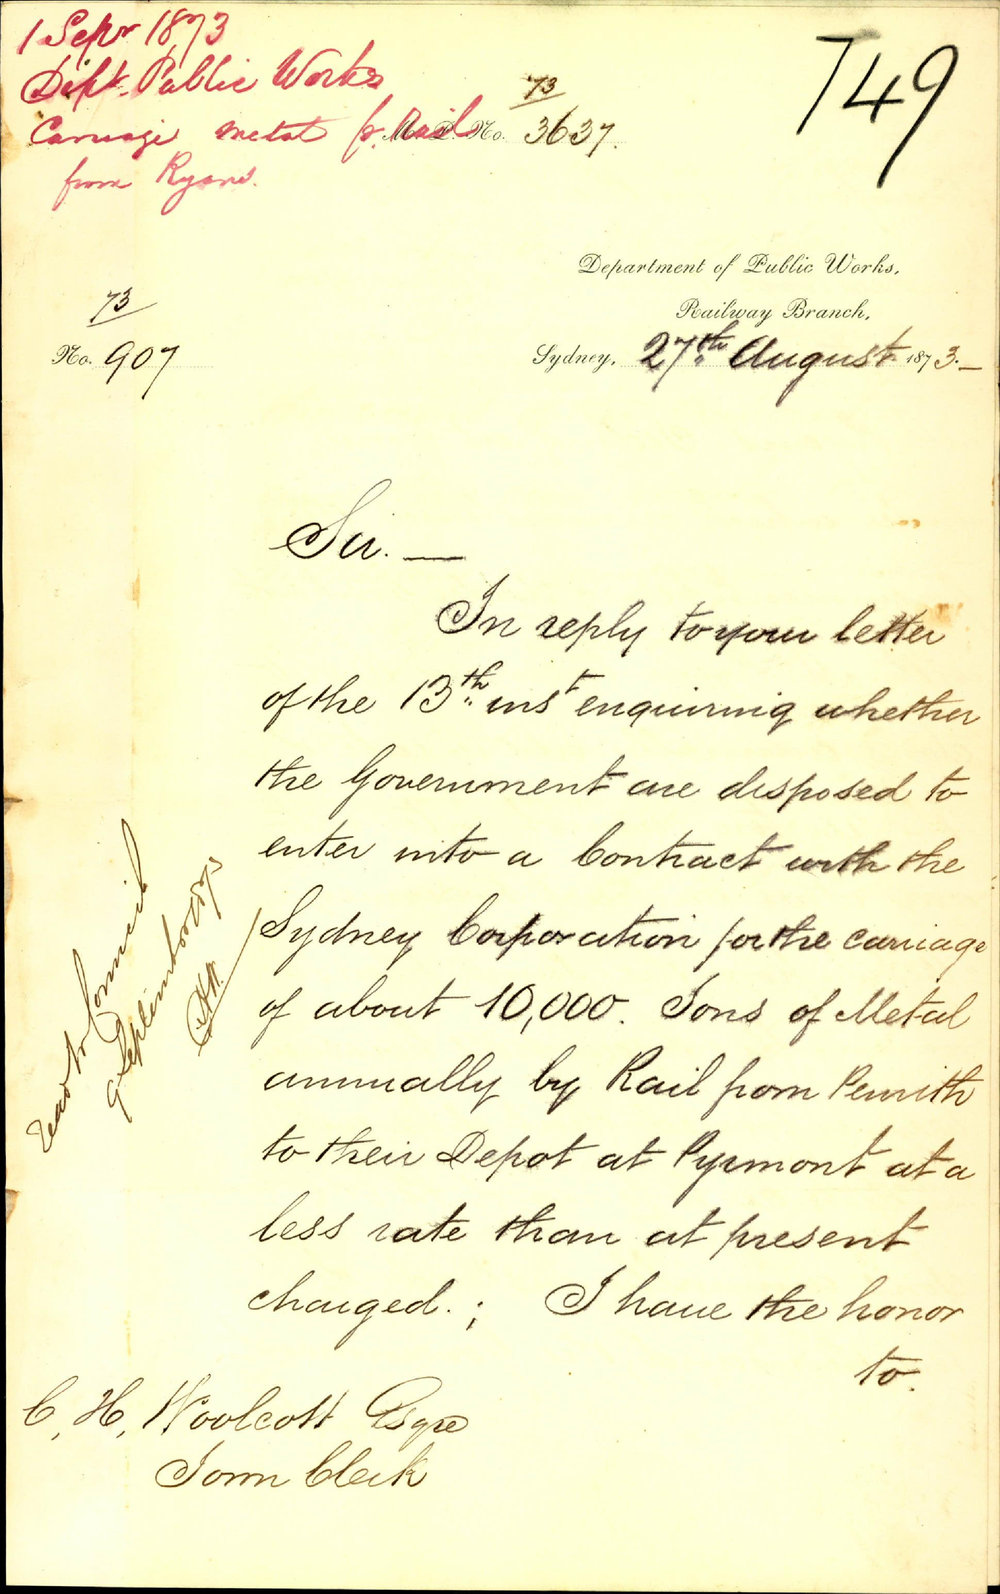 1 Sepr 1873
Dept. Public Works
Carriage metal p. Rail
from Ryans.
73
M.P. No. 3637.
749
Department of Public Works,
Railway Branch,
Sydney, 27th August 1873.
73
No. 907
Sir.
In reply to your letter
of the 13th inst enquiring whether
the Government are disposed to
enter into a Contract with the
Sydney Corporation for the carriage
of about 10,000. Tons of Metal
annually by Rail from Penrith
to their Depot at Pyrmont at a
less rate than at present
charged. ; I have the honor
to.
Read to Council
9 September 1873
C, H, Woolcott Esqre
Town Clerk